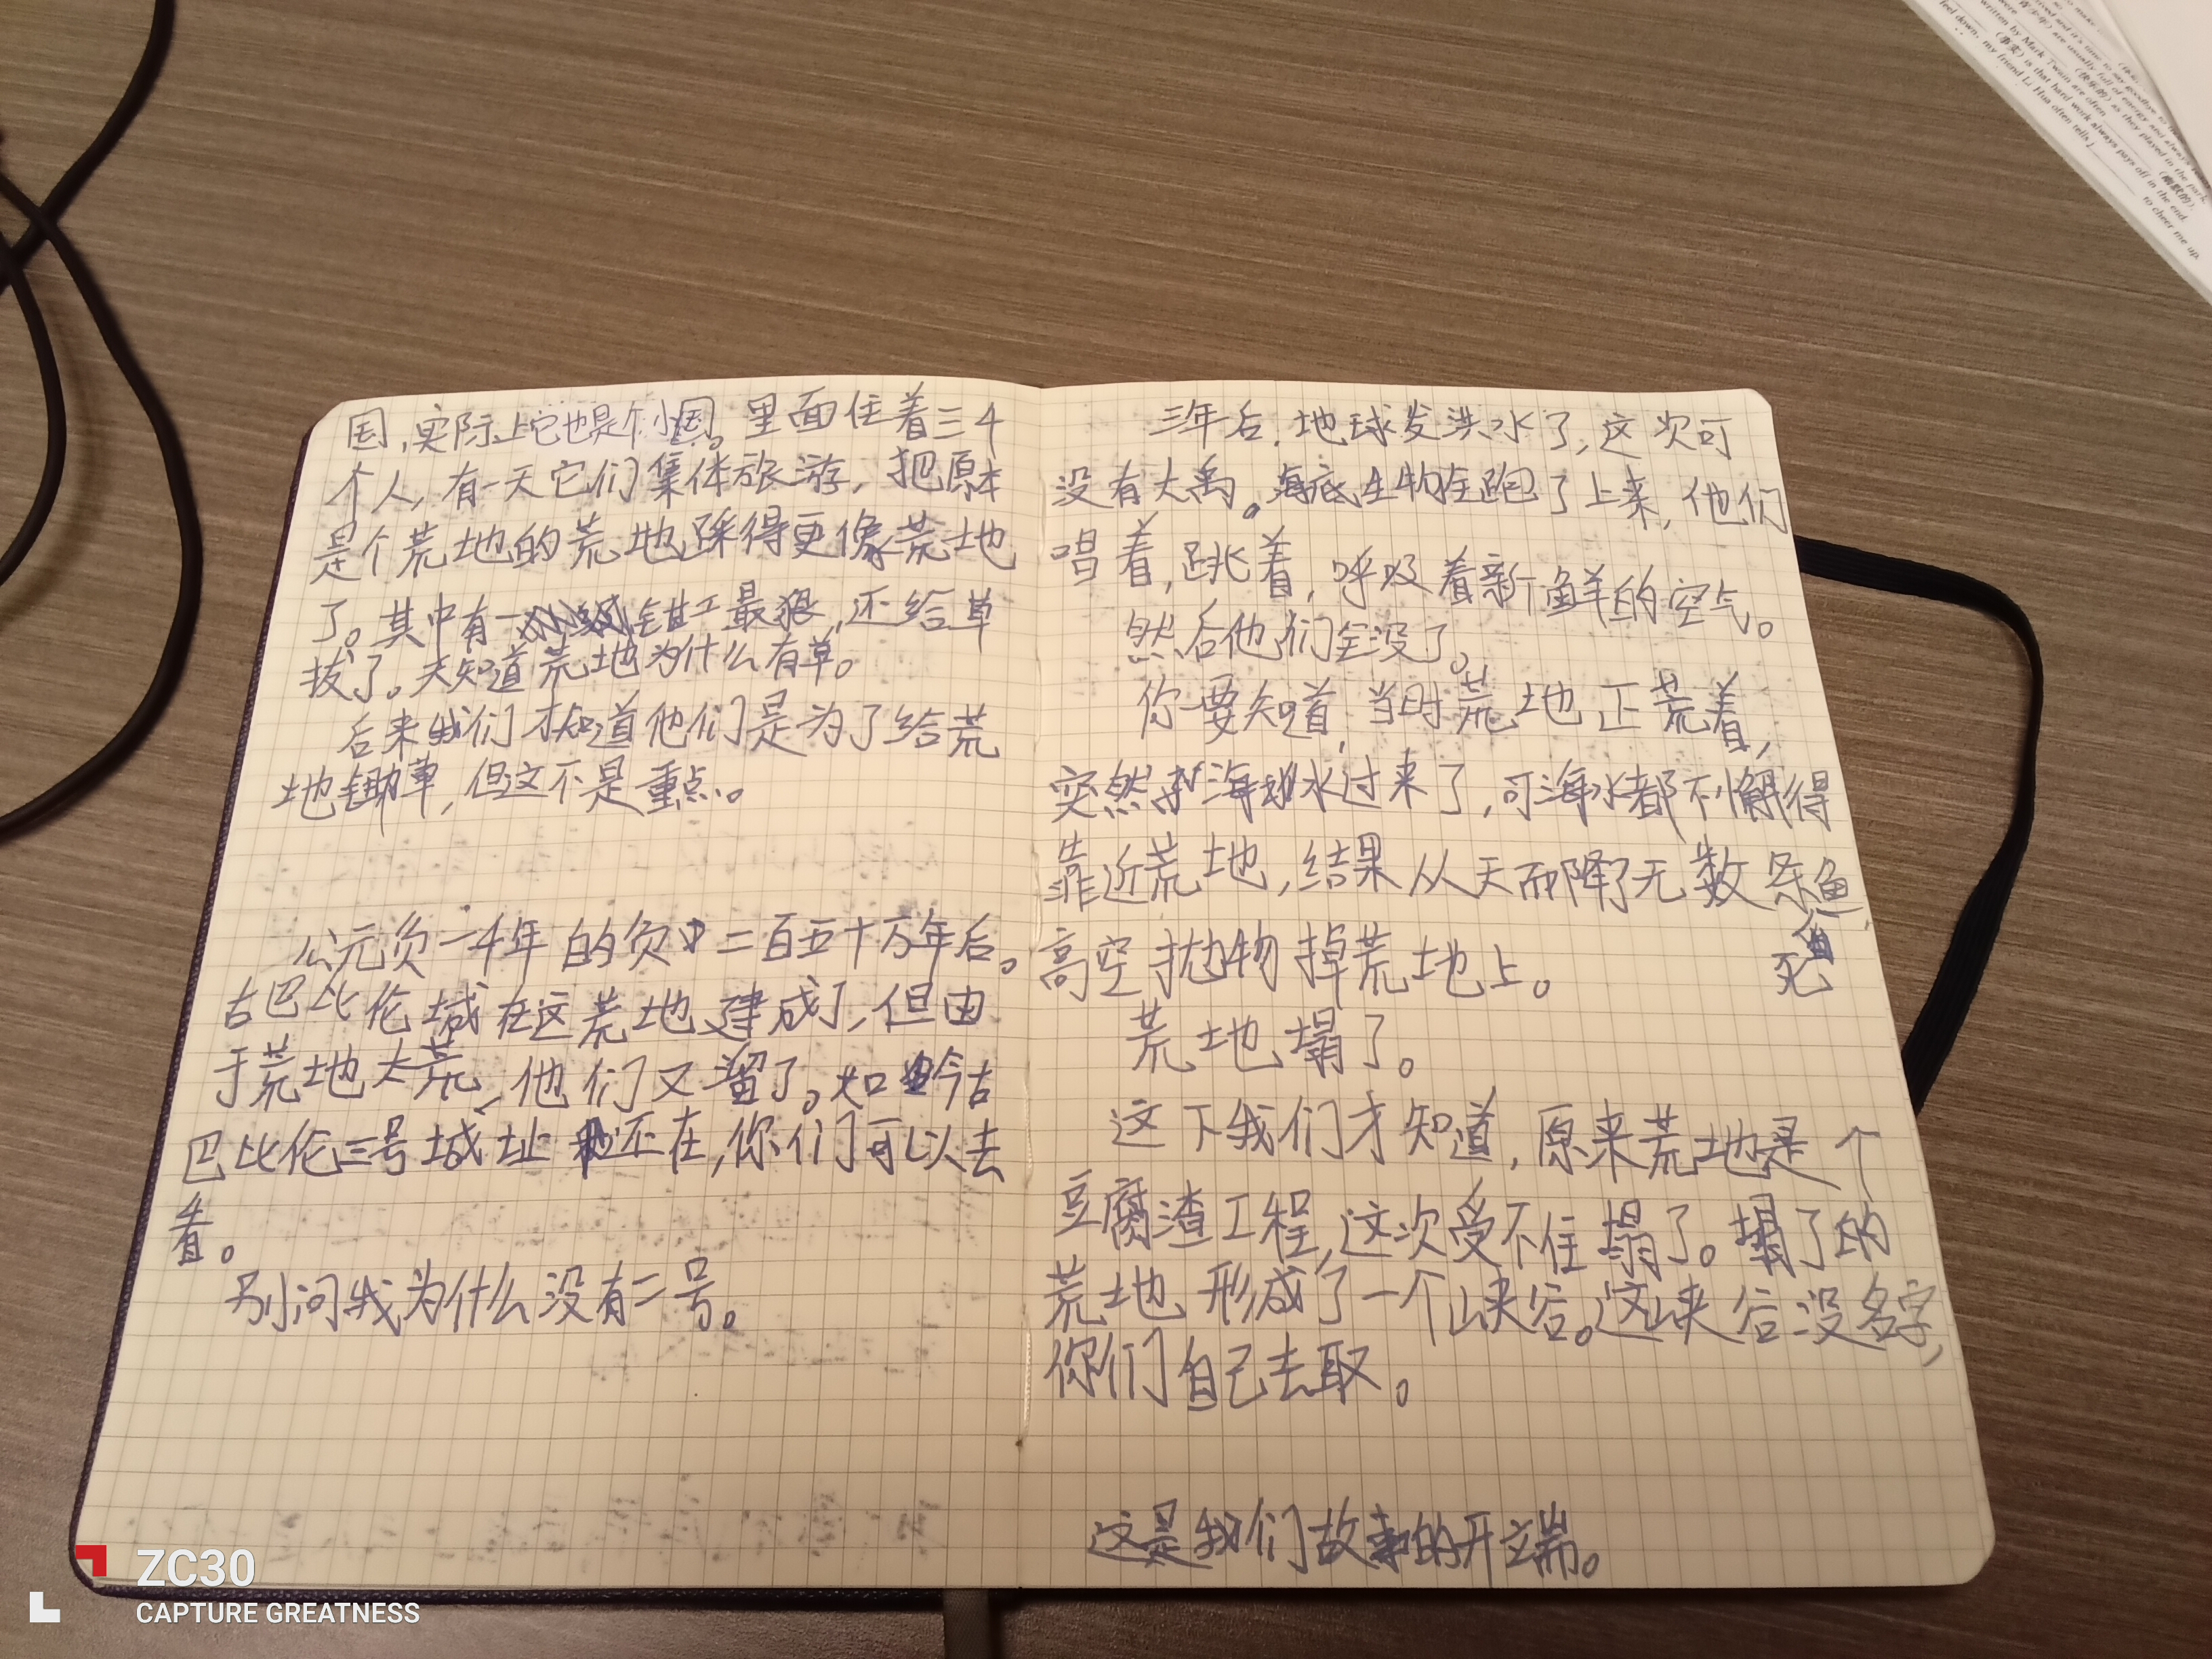 国,实际上它也是个小国。里面住着三4
个人,有一天它们集体旅游,把原本
是个荒地的荒地踩得更像荒地
了。其中有一钳工最狠,还给草
拔了。天知道荒地为什么有草。
后来我们才知道他们是为了给荒
地锄草,但这不是重点。
公元负一4年的负二百五十万年后。
古巴比伦城在这荒地建成了,但由
于荒地太荒,他们又溜了。如今古
巴比伦三号城址还在,你们可以去
看。
别问我为什么没有二号。
三年后,地球发洪水了,这次可
没有大禹。海底生物全跑了上来,他们
唱着,跳着,呼吸着新鲜的空气。
然后他们全没了。
你要知道,当时荒地正荒着,
突然海水过来了,可海水都不懈得
靠近荒地,结果从天而降了无数条鱼
死鱼
高空抛物掉荒地上。
荒地塌了。
这下我们才知道,原来荒地是个
豆腐渣工程,这次受不住塌了。塌了的
荒地形成了一个峡谷。这峡谷没名字,
你们自己去取。
这是我们故事的开端。
were by Mark Twain are often
feel down, my friend Li Hua often tells
is that hard work always pays off in the end.
to cheer me up.
ZC30
CAPTURE GREATNESS